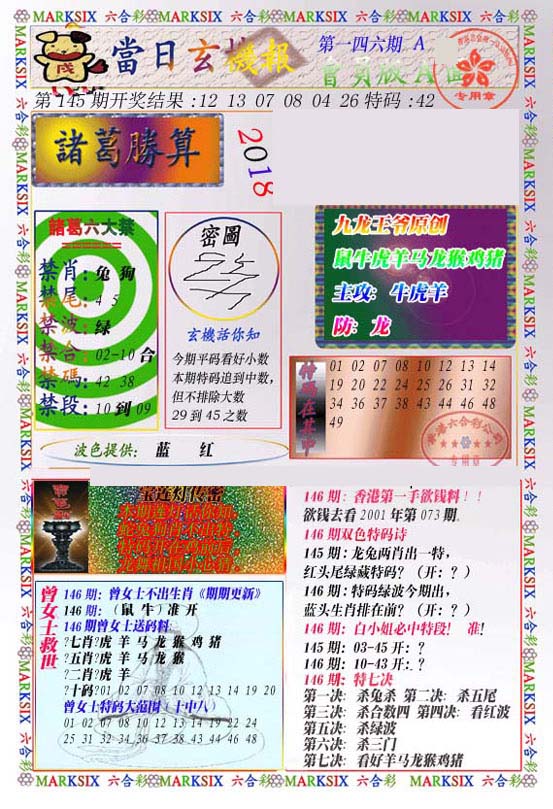 MARKSIX 六合彩 MARKSIX 六合彩 MARKSIX 六合彩 MARKSIX 六合彩 MARKSIX
當日玄機報
第一四六期. A
會員版A面
专用章
第 145 期开奖结果 :12 13 07 08 04 26 特码 :42
諸葛勝算
2018
諸葛六大禁
禁肖:兔 狗
禁尾: 4 5
禁波:绿
禁合:02-10 合
禁碼:42 38
禁段:10 到 09
密圖
玄機话你知
今期平码看好小数
本期特码追到中数,
但不排除大数
29 到 45 之数
九龙王爷原创
鼠牛虎羊马龙猴鸡猪
主攻: 牛虎羊
防: 龙
特碼在其中
01 02 07 08 10 12 13 14
19 20 22 24 25 26 31 32
34 36 37 38 43 44 46 48
49
专用章
波色提供: 蓝 红
146 期: 香港第一手欲钱料！！
欲钱去看 2001 年第 073 期.
146 期双色特码诗
145 期: 龙兔两肖出一特,
红头尾绿藏特码? (开: ? )
146 期: 特码绿波今期出,
蓝头生肖排在前? (开: ? )
146 期: 白小姐必中特段! 准!
145 期: 03-45 开: ?
146 期: 10-43 开: ?
146 期: 特七决
第一决: 杀兔杀 第二决: 杀五尾
第三决: 杀合数四 第四决: 看红波
第五决: 杀绿波
第六决: 杀三门
第七决: 看好羊马龙猴鸡猪
曾女士救世
146 期: 曾女士不出生肖《期期更新》
146 期: (鼠 牛) 准 开
146 期曾女士送码料:
?七肖?虎 羊 马 龙 猴 鸡 猪
?五肖?虎 羊 马 龙 猴
?二肖?虎 羊
?十码?01 02 07 08 10 12 13 14 19 20
曾女士特码大范围 (十中八)
01 02 07 08 10 12 13 14 19 22 24
25 31 32 34 36 37 38 43 44 46 48
MARKSIX 六合彩 MARKSIX 六合彩 MARKSIX 六合彩 MARKSIX 六合彩 MARKSIX